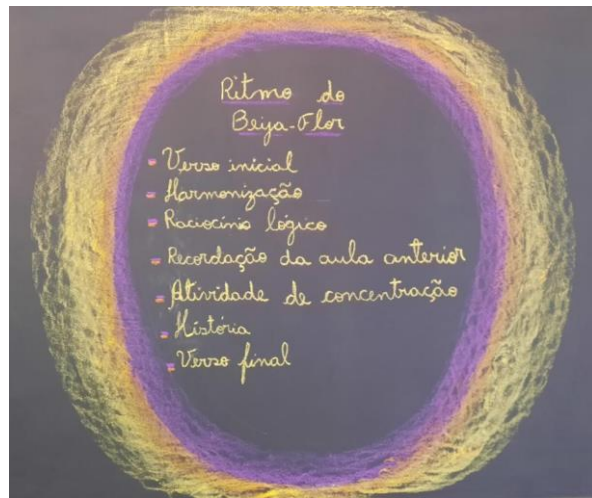 Ritmo do
Beija-Flor
- Verso inicial
- Harmonização
- Raciocínio lógico
- Recordação da aula anterior
- Atividade de concentração
- História
- Verso final